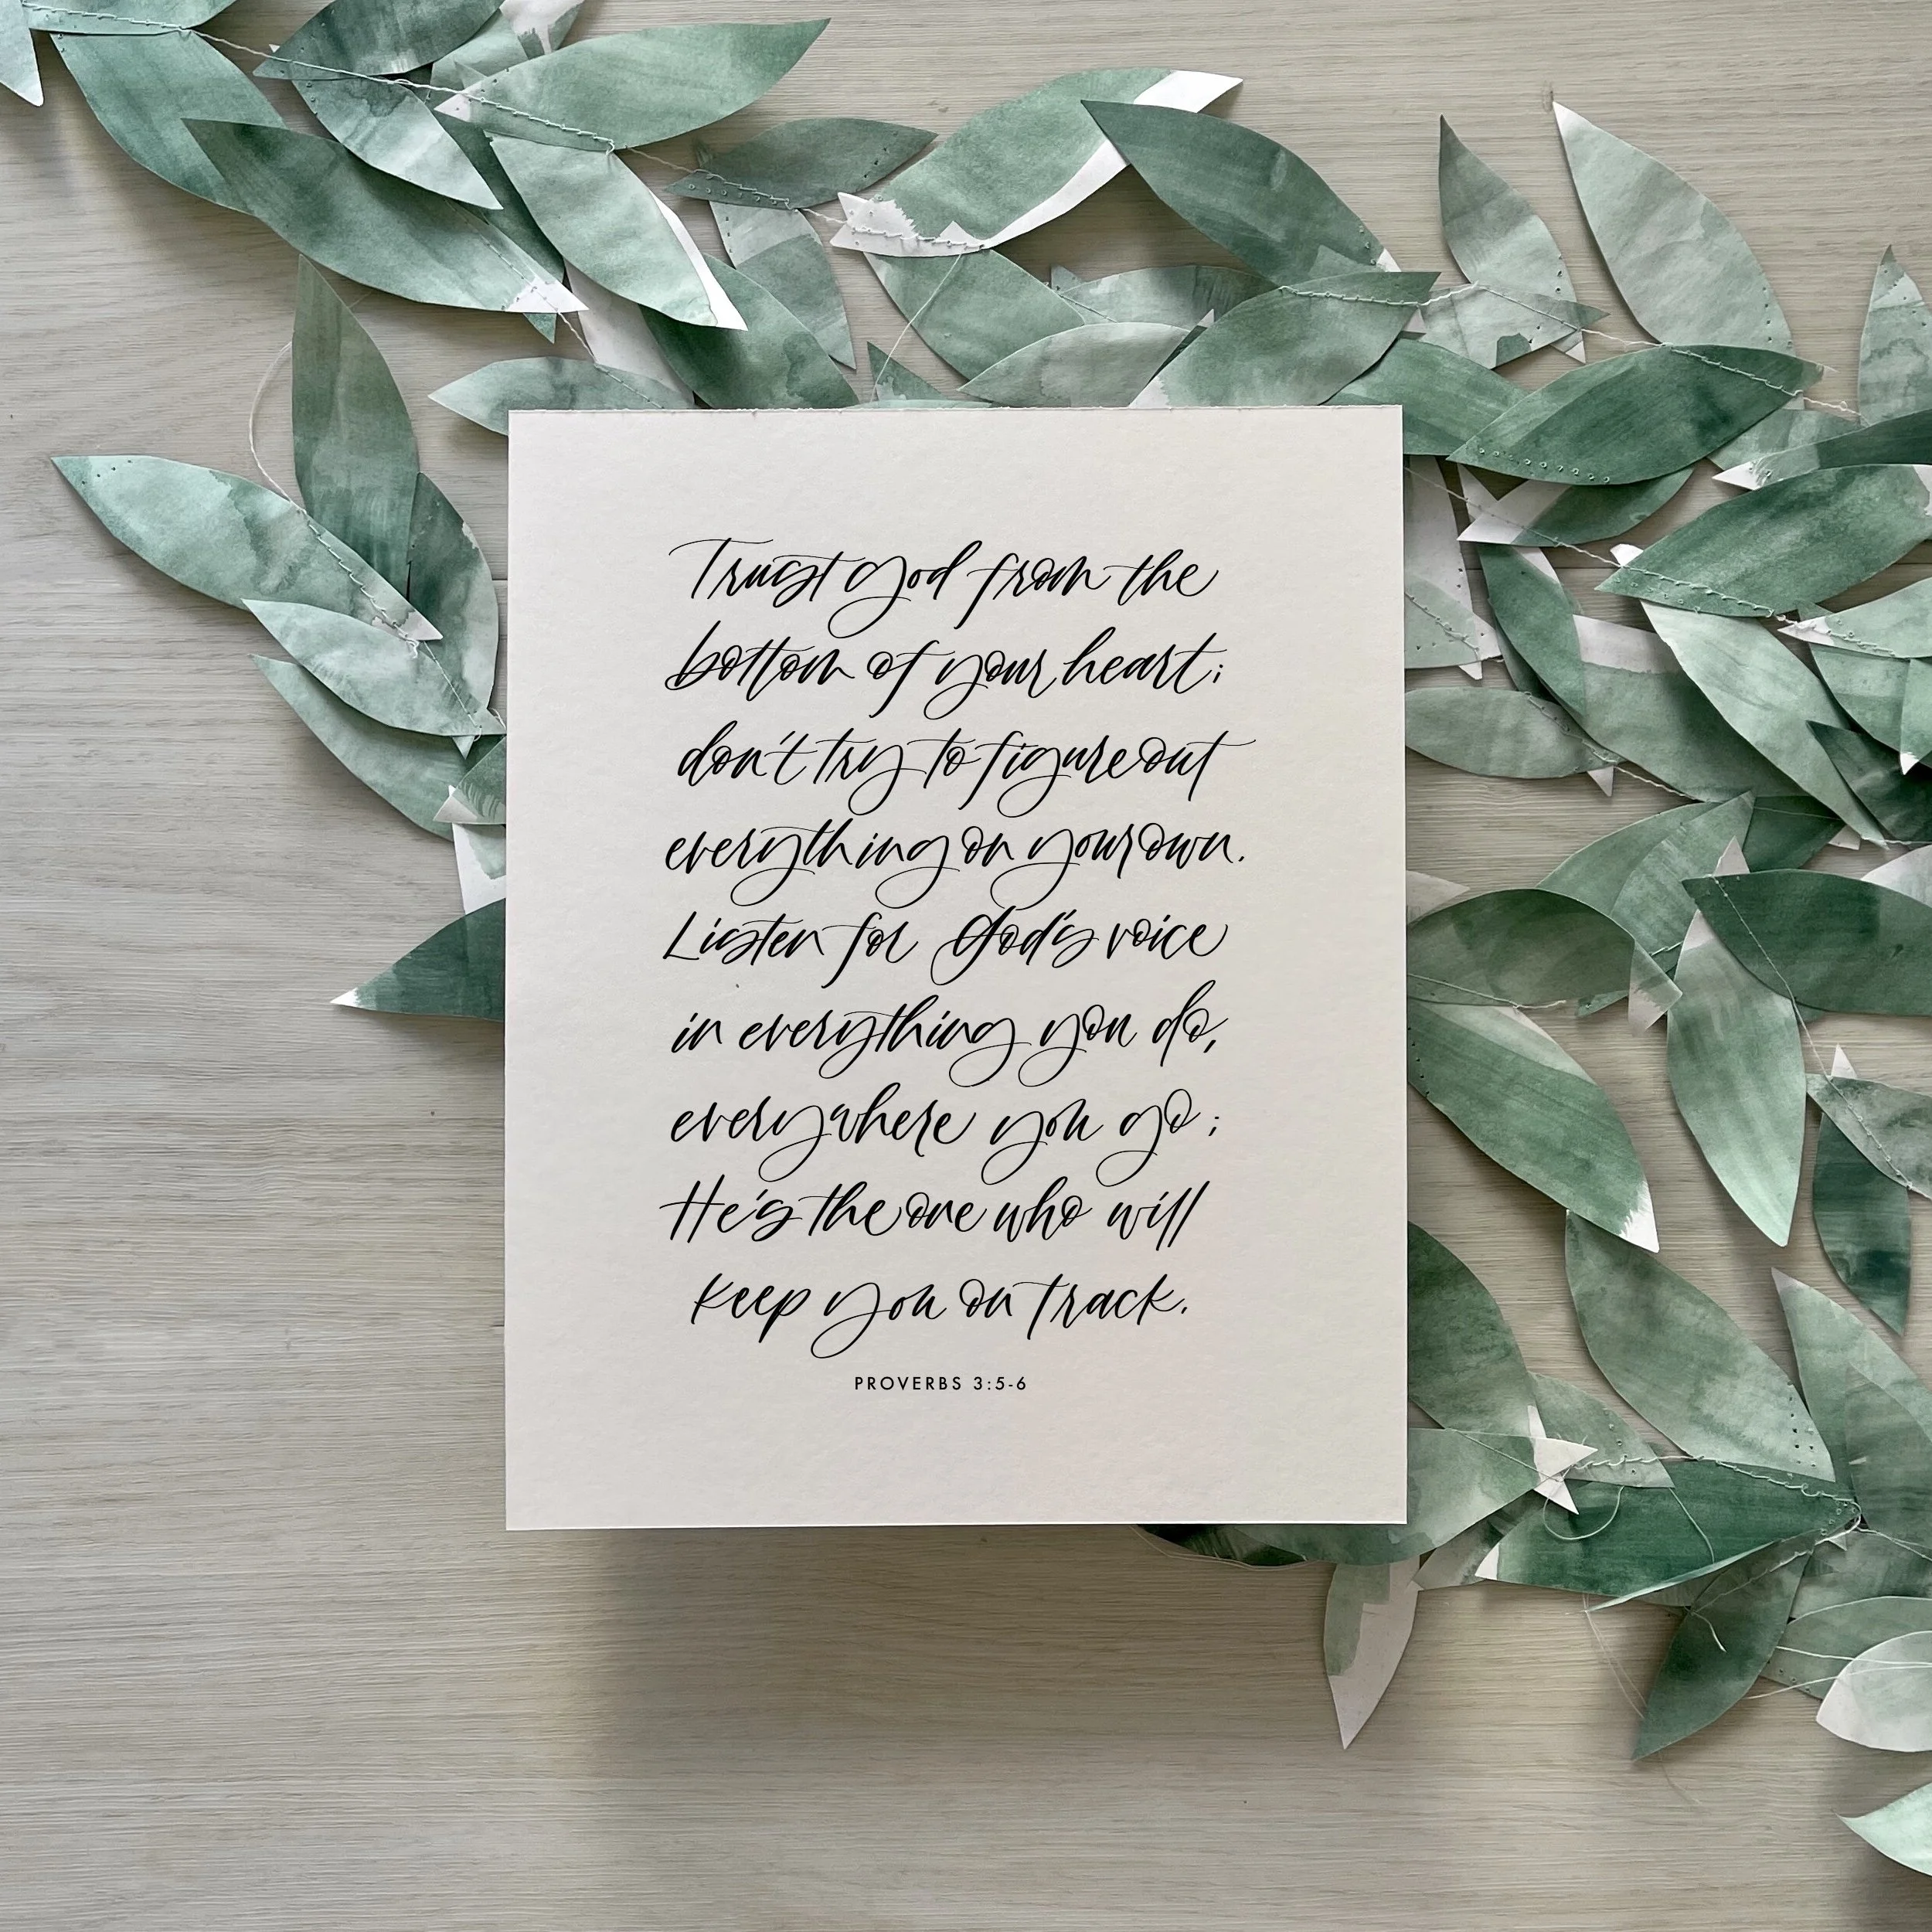 Trust God from the
bottom of your heart;
don't try to figure out
everything on your own.
Listen for God's voice
in everything you do,
everywhere you go;
He's the one who will
keep you on track.
PROVERBS 3:5-6